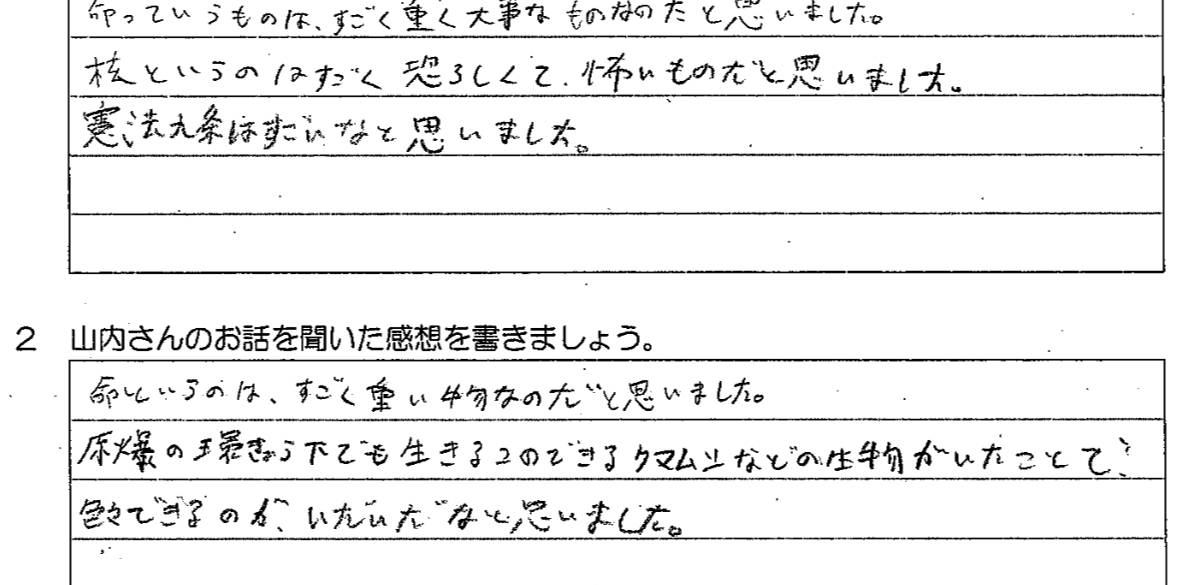 命っていうものは、すごく重く大事なものなのだと思いました。
核というのはすごく恐ろしくて、怖いものだと思いました。
憲法九条はすごいなと思いました。
2 山内さんのお話を聞いた感想を書きましょう。
命というのは、すごく重い物なのだと思いました。
原爆の環きょう下でも生きることのできるクマムシなどの生物がいたことで
色々できるのが、
なと思いました。